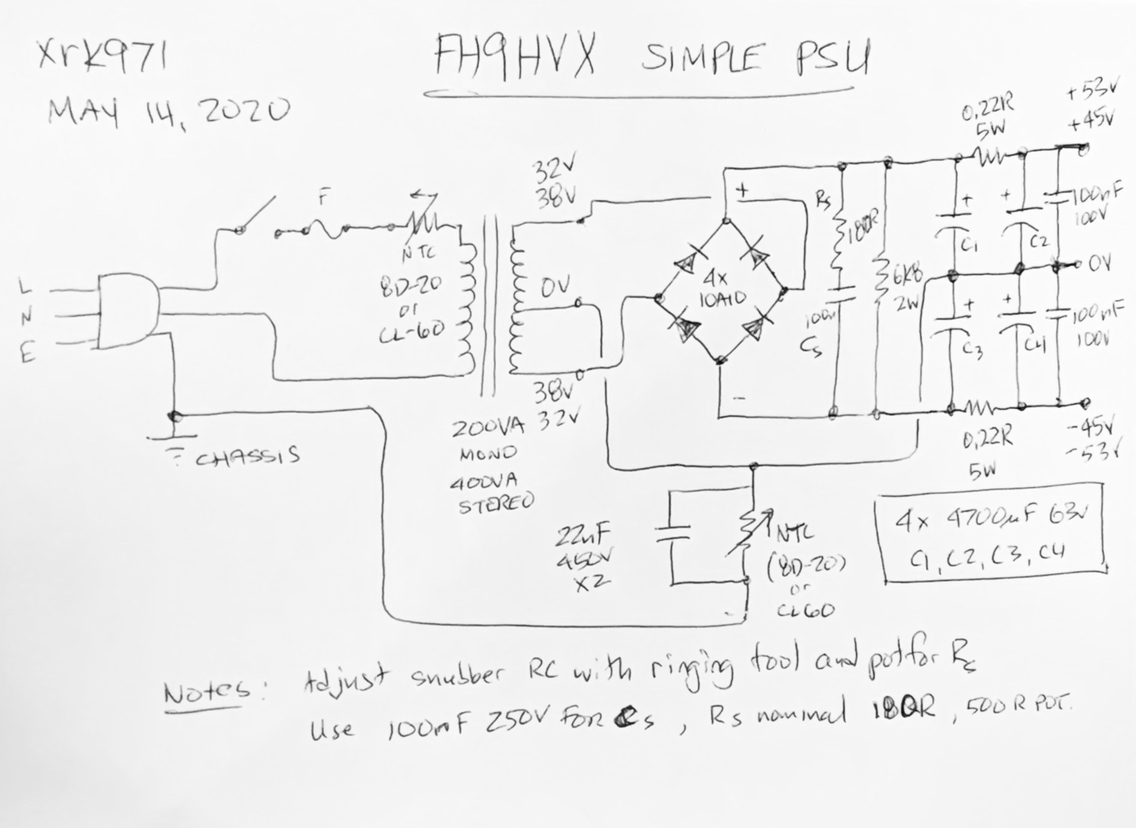 XrK971
FH9HVX SIMPLE PSU
MAY 14, 2020
+53V
+45V
0,22R
5W
32V
38V
F
NTC
8D-20
or
CL-60
L
N
E
0V
38V
32V
200VA
MONO
400VA
STEREO
CHASSIS
+
4x
10A10
-
Rs
180R
100n
Cs
6K8
2W
+
C1
+
C2
100nF
100V
0V
+
C3
+
C4
100nF
100V
0,22R
5W
-45V
-53V
22nF
450V
X2
NTC
(8D-20)
or
CL60
4x 4700uF 63V
C1, C2, C3, C4
Notes: Adjust snubber RC with ringing tool and pot for Rs
Use 100nF 250V For Cs, Rs nominal 180R, 500R POT.